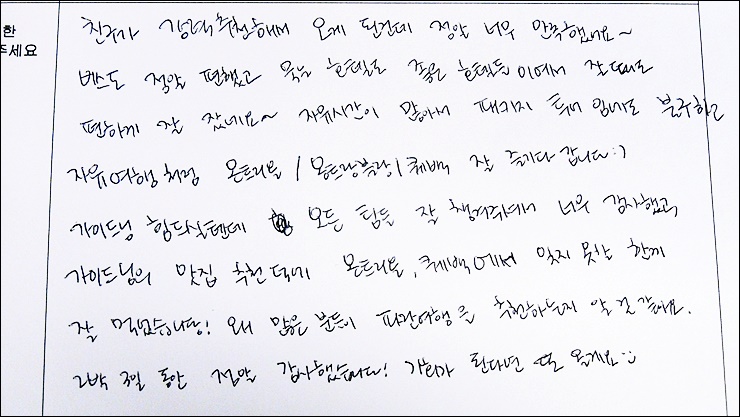 한
주세요
친구가 강력추천해서 오게 된건데 정말 너무 만족했네요~
버스도 정말 편했고 묵는 호텔도 좋은 호텔들이어서 잘 때도
편하게 잘 잤네요~ 자유시간이 많아서 패키지 투어 임에도 불구하고
자유여행처럼 몬트리올 / 몽트랑블랑 / 퀘벡 잘 즐기다 갑니다:)
가이드님 힘드실텐데 모든 팀들 잘 챙겨주셔서 너무 감사했고
가이드님의 맛집 추천 덕에 몬트리올, 퀘벡에서 잊지 못할 한끼
잘 먹었습니당! 왜 많은 분들이 파란여행을 추천하는지 알 것 같아요.
2박 3일 동안 정말 감사했습니다! 기회가 된다면 또 올게요:)